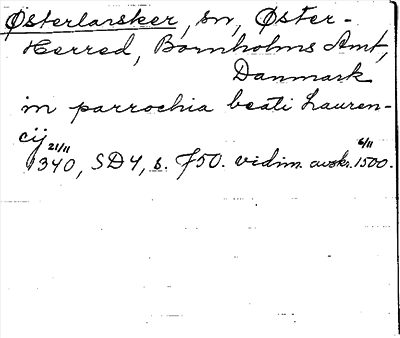 Østerlarsker, sn, Øster-
Herred, Bornholms Amt,
Danmark
in parrochia beati Lauren-
cij
21/11 1340, SD4, s. 750. vidim. avskr. 6/11 1500.